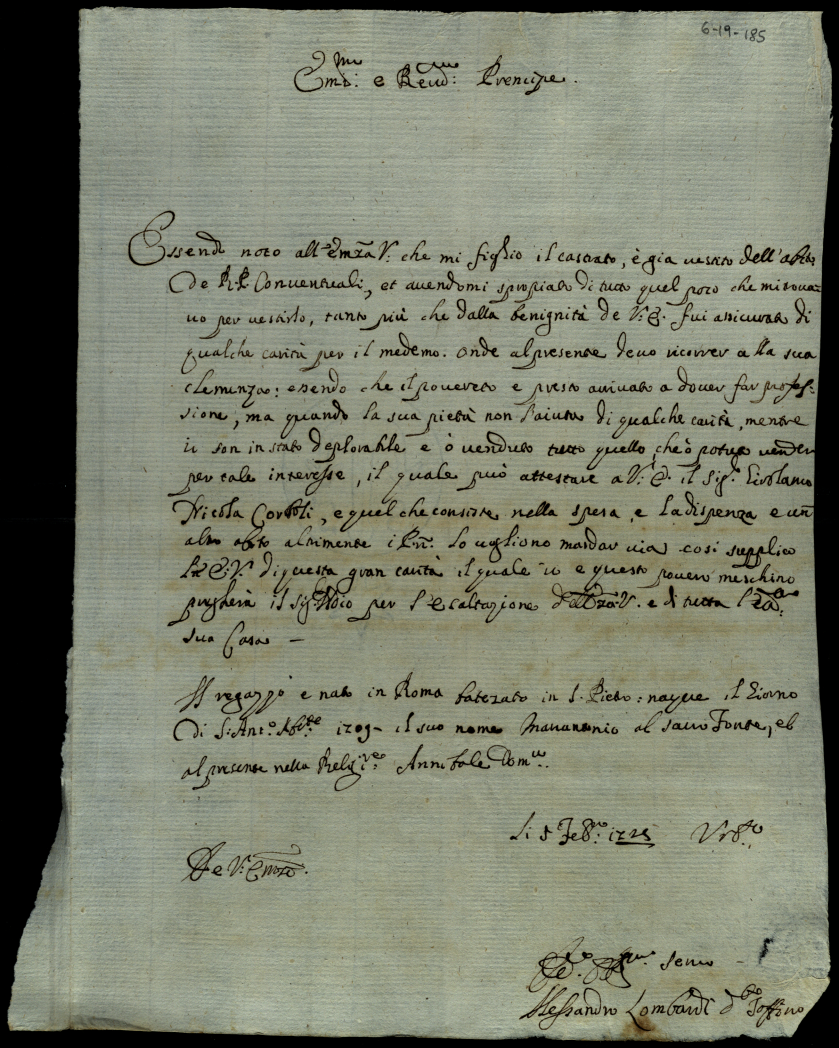 6-19-185
Em.mo e Reud.mo Prencipe.
Essendo noto all'Emza V: che mi figlio il castrato, è gia uestito dell'abito
De P.P. Conuentuali, et auendomi spropiato di tutto quel poco che mi troua=
uo per uestirlo, tanto più che dalla benignità de V: E. fui assicurato di
qualche carità per il medemo. onde al presente deuo ricorrer alla sua
clemenza: essendo che il pouereto e presto arriuato a douer far profes=
sione, ma quando la sua pietà non l'aiuta di qualche carità, mentre
io son in stato deplorabile e ò uenduto tutto quello che ò potuto uender
per tale interesse, il quale può attestare a V: E. il Sig.r Girolamo
Nicola Corboli, e quel che consiste nella spesa, e la dispenza e un
altro abito altrimente i Pri. lo uogliono mandar uia cosi supplico
E: V: di questa gran carità il quale io e questo pouero meschino
pregherà il Sig. Iddio per l'esaltazione dell'Emza V. e di tutta l'
sua Casa —
Il regazzo e nato in Roma batezato in S. Pietro: nacque il Giorno
Di S: Ant.o Ab.te 1709 - il suo nome Marcantonio al sacro Fonte, et
al presente nella Relig.ne Annibale Dom.co.
Li 5 Feb.ro 1725 Urb.o
De V: Emze.
seruo -
Alessandro Lombardi d.to